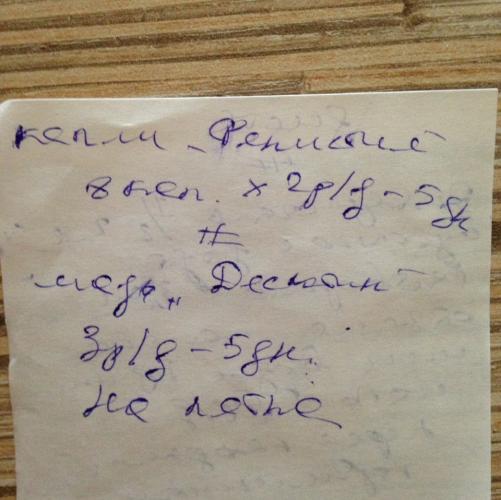 капли „Фенистил"
8 кап. x 2р/д – 5 дн
#
мазь „Деситин"
3р/д – 5 дн.
на пятна